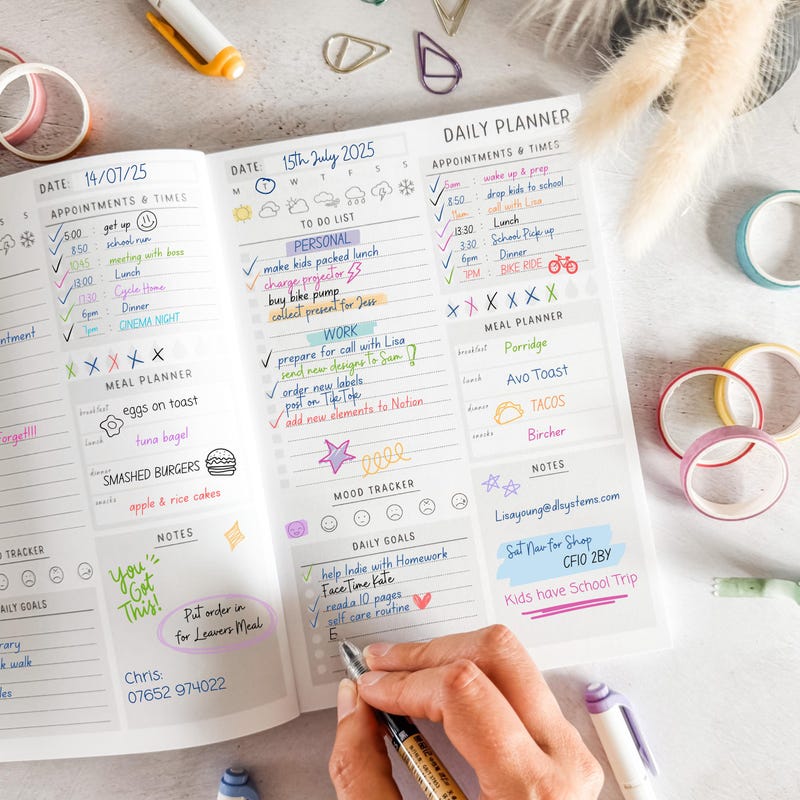 DATE: 14/07/25
S S
APPOINTMENTS & TIMES
5:00 : get up
8:50 : school run
10:45 : meeting with boss
13:00 : Lunch
17:30 : Cycle Home
6pm : Dinner
7pm : CINEMA NIGHT
ntment
orget!!!
MEAL PLANNER
breakfast eggs on toast
lunch tuna bagel
dinner SMASHED BURGERS
snacks apple & rice cakes
NOTES
You
Got
This!
Put order in
for Leavers Meal
Chris:
07652 974022
D TRACKER
AILY GOALS
rary
k walk
les
DAILY PLANNER
DATE: 15th July 2025
M T W T F S S
TO DO LIST
PERSONAL
make kids packed lunch
charge projector
buy bike pump
collect present for Jess
WORK
prepare for call with Lisa
send new designs to Sam !
order new labels
post on TikTok
add new elements to Notion
MOOD TRACKER
DAILY GOALS
help Indie with Homework
FaceTime Kate
read a 10 pages
self care routine
E
APPOINTMENTS & TIMES
5am : wake up & prep
8:50 : drop kids to school
11am : call with Lisa
13:30 : Lunch
3:30 : School Pick up
6pm : Dinner
7PM : BIKE RIDE
MEAL PLANNER
breakfast Porridge
lunch Avo Toast
dinner TACOS
snacks Bircher
NOTES
Lisayoung@dlsystems.com
Sat Nav for Shop
CF10 2BY
Kids have School Trip